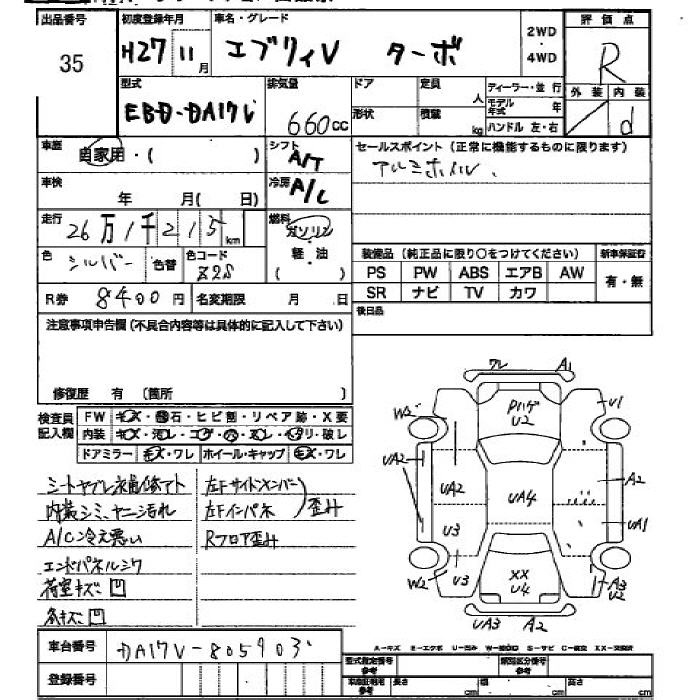 出品番号
初度登録年月
車名・グレード
評価点
35
H27 11月
エブリイV ターボ
2WD
・
4WD
R
型式
排気量
ドア
定員
人
ディーラー・並行
モデル年式 年
外装
内装
EBD-DA17V
660cc
形状
積載
kg
ハンドル 左・右
d
車歴
自家用・( )
シフト
A/T
セールスポイント(正常に機能するものに限ります)
アルミホイル、
車検
年 月( 日)
冷房
A/C
走行
26万1千215km
燃料
ガソリン
・
軽・油
( )
色
シルバー
色替
色コード
Z2S
装備品(純正品に限り○をつけてください)
新車保証書
PS PW ABS エアB AW
有・無
SR ナビ TV カワ
R券 8400円
名変期限 月 日
後日品
注意事項申告欄(不具合内容等は具体的に記入して下さい)
修復歴 有 (箇所 )
検査員記入欄
FW キズ・飛石・ヒビ割・リペア跡・X要
内装 キズ・汚レ・コゲ・穴・スレ・ヘタリ・破レ
ドアミラー キズ・ワレ ホイール・キャップ キズ・ワレ
シートヤブレ補修アト
内装シミ、ヤニ汚れ
A/C冷え悪い
エンドパネルシワ
荷室キズ凹
各キズ凹
左Fサイドメンバー
左Fインパネ
歪み
Rフロア歪み
ワレ A1
W2 Pハゲ U2 U1
UA2 UA2 UA4 A2
U3 UA1
W2 U3 XX U4 A3 U2
UA3 A2
A-キズ E-エクボ U-凹み W-補修跡 S-サビ C-腐食 XX-交換済
車台番号 DA17V-805903
登録番号
型式指定番号 参考
類別区分番号 参考
車庫証明用 参考
長さ cm
幅 cm
高さ cm